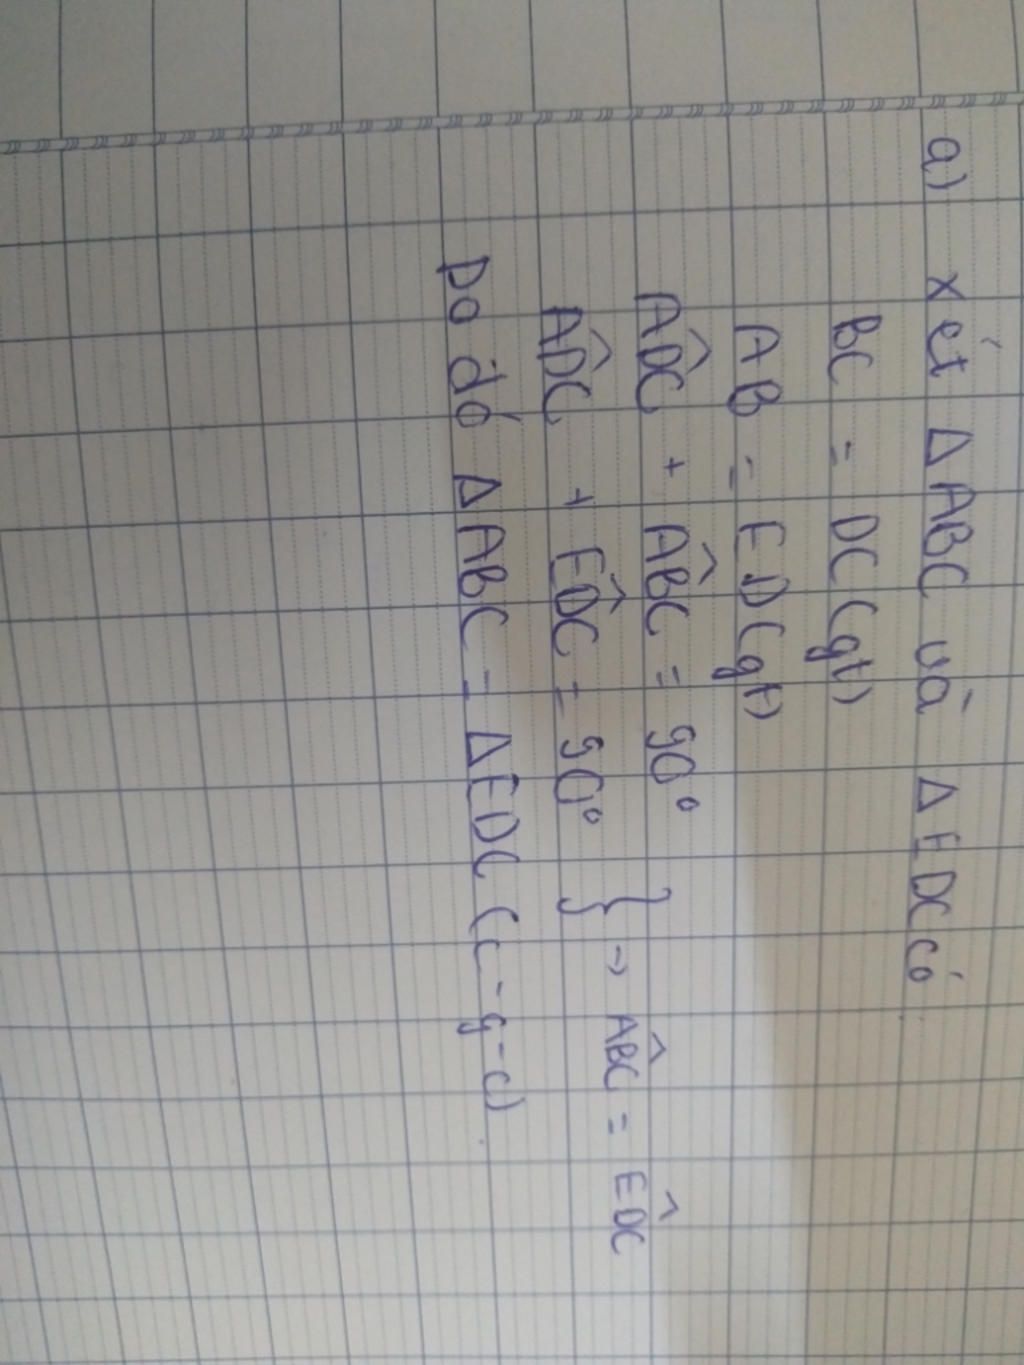 a) xét Δ ABC và Δ EDC có
BC = DC (gt)
AB = ED (gt)
ADC^ + ABC^ = 90°
ADC^ + EDC^ = 90° } → ABC^ = EDC^
Do đó Δ ABC = ΔEDC (c-g-c)